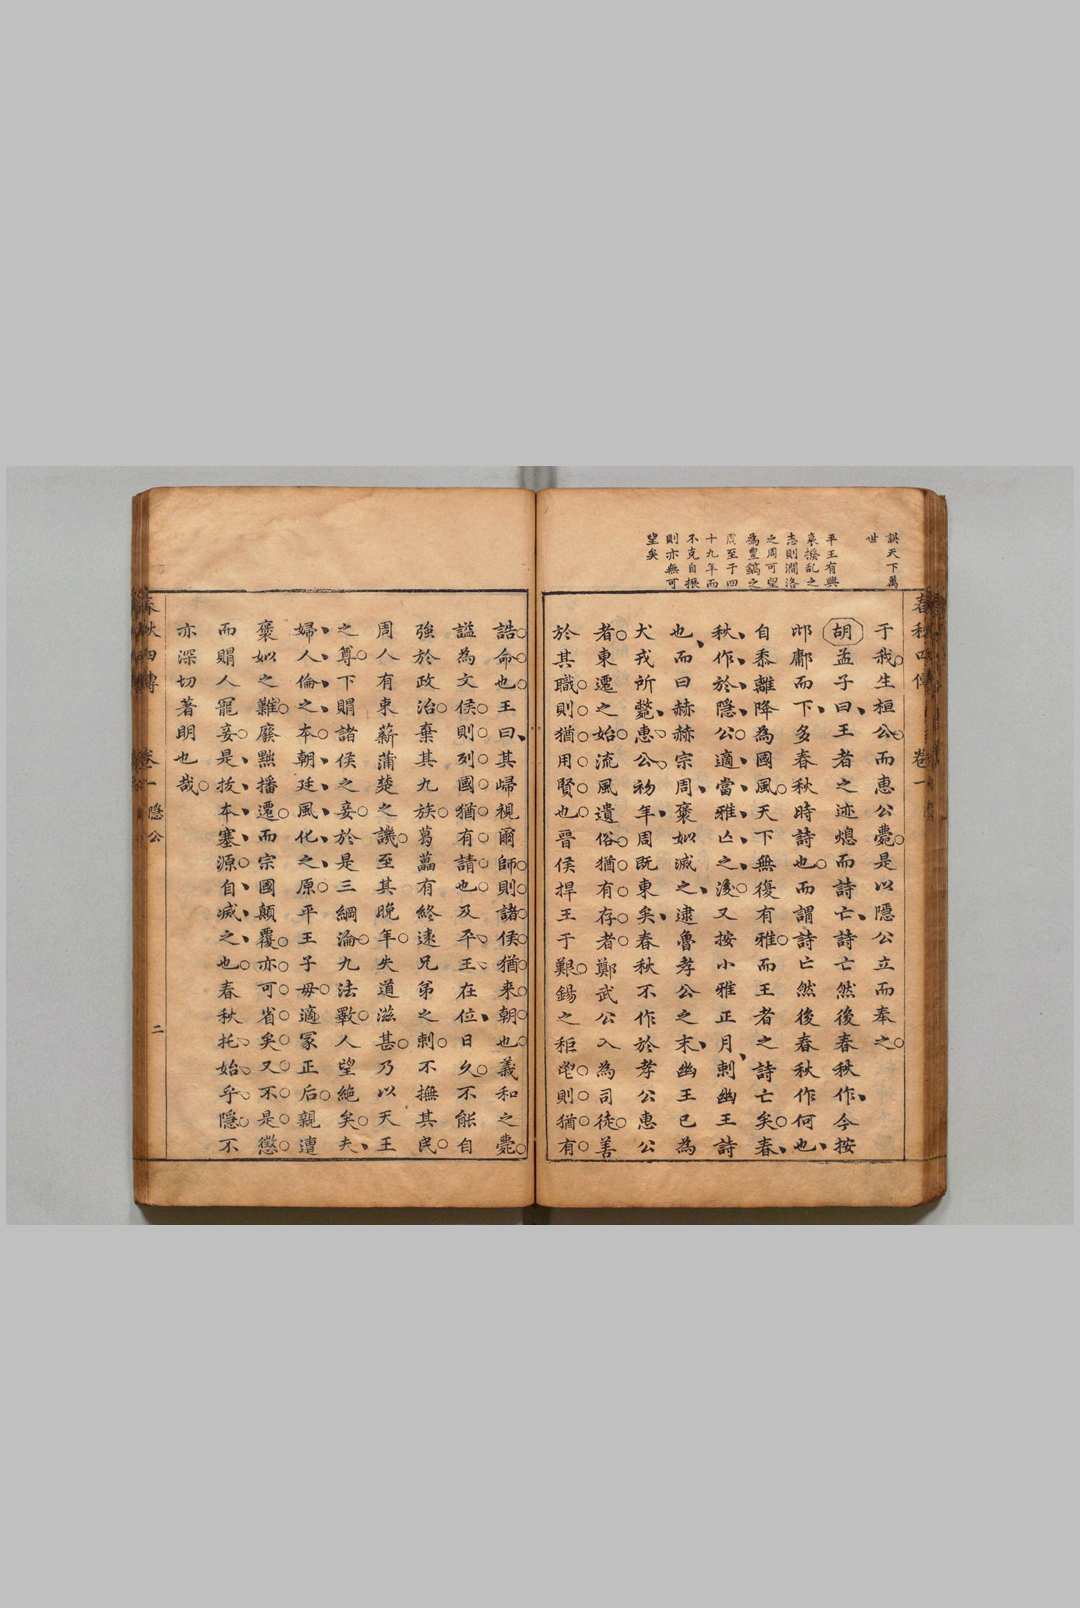 誤天下萬
世
平王有興
衰撥亂之
志則澗洛
之周可望
為豐鎬之
周至于四
十九年而
不克自振
則亦無可
望矣
春秋四傳 卷一
于我生桓公而惠公薨是以隱公立而奉之
胡孟子曰王者之迹熄而詩亡詩亡然後春秋作今按
邶鄘而下多春秋時詩也而謂詩亡然後春秋作何也
自黍離降為國風天下無復有雅而王者之詩亡矣春
秋作於隱公適當雅亡之後又按小雅正月刺幽王詩
也而曰赫赫宗周褒姒滅之逮魯孝公之末幽王已為
犬戎所斃惠公初年周既東矣春秋不作於孝公惠公
者東遷之始流風遺俗猶有存者鄭武公入為司徒善
於其職則猶用賢也晉侯捍王于艱錫之秬鬯則猶有
誥命也王曰其歸視爾師則諸侯猶來朝也義和之薨
謚為文侯則列國猶有請也及平王在位日久不能自
強於政治棄其九族葛藟有終遠兄弟之刺不撫其民
周人有束薪蒲楚之譏至其晚年失道滋甚乃以天王
之尊下賵諸侯之妾於是三綱淪九法斁人望絕矣夫
婦人倫之本朝廷風化之原平王子母適冢正后親遭
褒姒之難廢黜播遷而宗國顛覆亦可省矣又不是懲
而賵人寵妾是拔本塞源自滅之也春秋托始乎隱不
亦深切著明也哉
春秋四傳 卷一 隱公 二